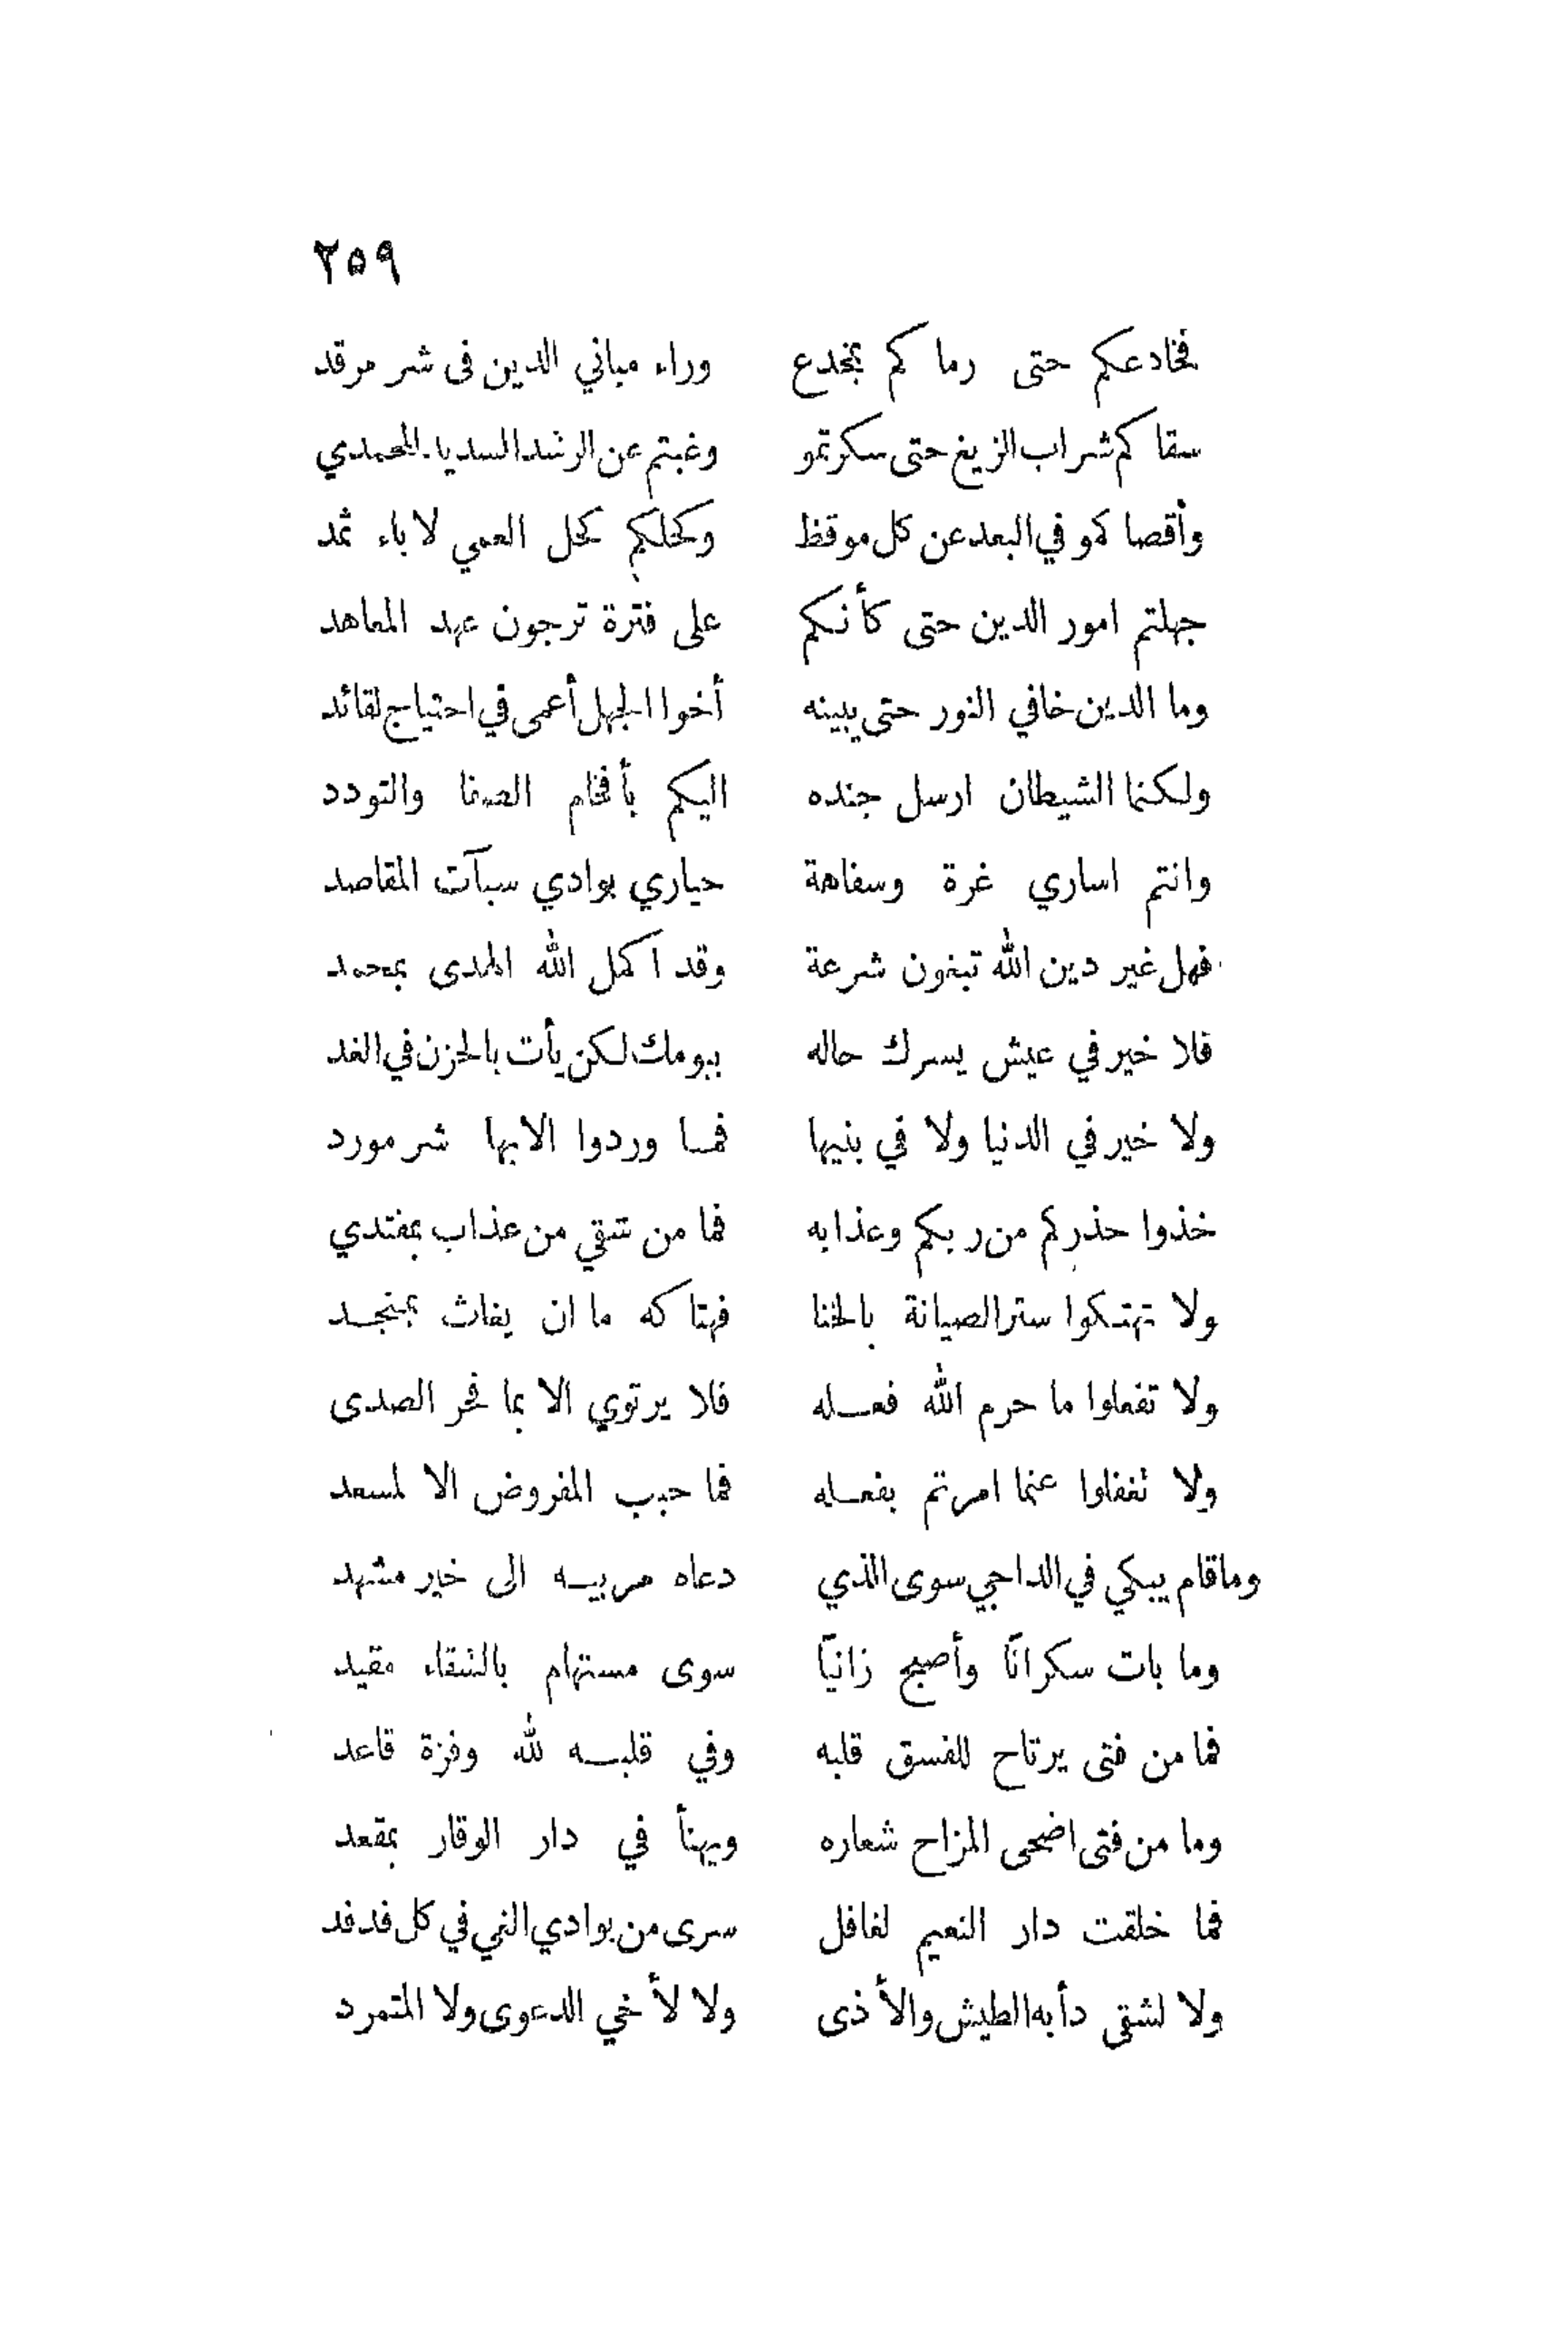 ٢٥٩
فخادعكم حتى رماكم بمخدع وراء مباني الدين فى شر مرقد
سقاكم شراب الزيغ حتى سكرتمو وغبتم عن الرشد السديد المحمدي
وأقصاكمو في البعد عن كل موقظ وكحلكم كحل العمي لاباء ثمد
جهلتم امور الدين حتى كأنكم على فترة ترجون عهد المعاهد
وما الدين خافي النور حتى يبينه أخوا الجهل أعمى في احتياج لقائد
ولكنما الشيطان ارسل جنده اليكم بأفخام الصفا والتودد
وانتم اساري غرة وسفاهة حياري بوادي سبآت المقاصد
فهل غير دين الله تبغون شرعة وقد اكمل الله الهدى بمحمد
فلا خير في عيش يسرك حاله بيومك لكن يأت بالحزن في الغد
ولا خير في الدنيا ولا في بنيها فمما وردوا الابها شر مورد
خذوا حذركم من ربكم وعذابه فما من شقي من عذاب بمفتدي
ولا تهتكوا ستر الصيانة بالخنا فهتاكه ما ان يغاث بمنجد
ولا تفعلوا ما حرم الله فعله فلا يرتوي الا بما فجر الصدى
ولا تغفلوا عنما امرتم بفعله فما حبب المفروض الا لمسعد
وما قام يبكي في الداجي سوى الذي دعاه مربيه الى خير مشهد
وما بات سكرانًا وأصبح زانيًا سوى مستهام بالشقاء مقيد
فما من فتى يرتاح للفسق قلبه وفي قلبه لله وفزة قاعد
وما من فتى اضحى المزاح شعاره ويهنأ في دار الوقار بمقعد
فما خلقت دار النعيم لغافل سرى من بوادي الغي في كل فدفد
ولا لشقي دأبه الطيش والأذى ولا لأخي الدعوى ولا المتمرد